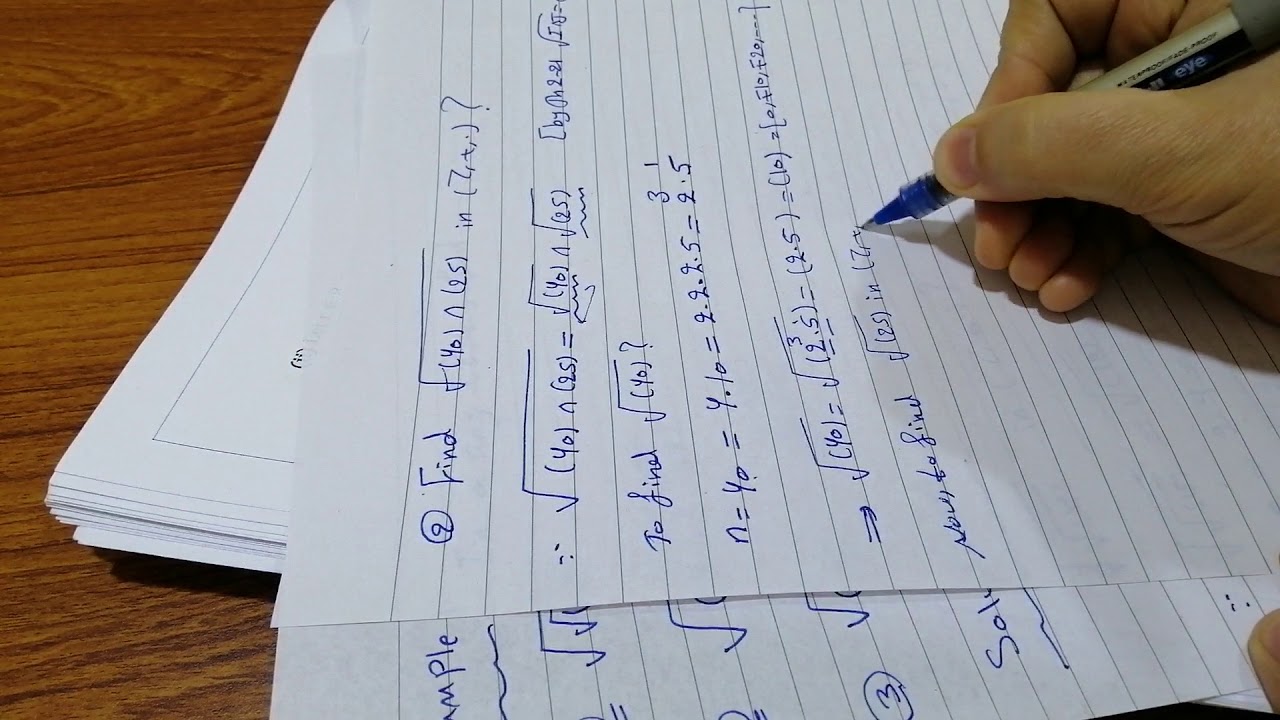 ② Find √(40)∩(25) in (Z,+,.)?
∵ √(40)∩(25) = √(40) ∩ √(25) [by
To find √(40)?
n = 40 = 4.10 = 2.2.2.5 = 2³.5¹
⇒ √(40) = √(2³.5) = (2.5) = (10) = {0,∓10,∓20,...}
Now, to find √(25) in (Z,+
ample
③
Sol
eye